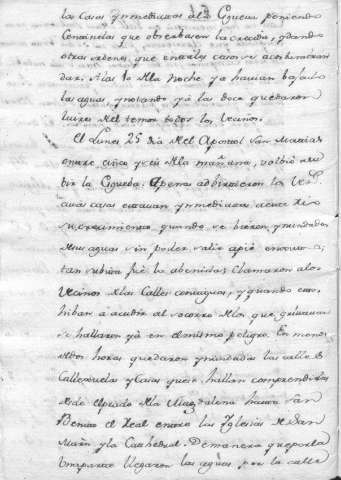 las Casas ynmediatas al Esgueva poniendo
Centinelas que observasen la crecida, y dando
otras ordenes que en tales casos se acostumbran
dar. A las 10 de la noche ya havian bajado
las aguas, y notando ya a las doce quedaron
libres del temor todos los Vecinos.
El Lunes 25 dia del Apostol San Matias
entre cinco y seis de la mañana, volbió a su
bir la Esgueba. Apenas advirtieron los Vec.s
cuias casas estavan ynmediatas a este Rio
su crecimiento, quando se vieron ynundados
de sus aguas sin poder salir a pie enjuto:
tan subita fué la abenida. Clamaron a los
Vecinos de las Calles contiguas, y quando es
tos iban a acudir al socorro de los que gritavan
se hallaron ya en el mismo peligro. En menos
de dos horas quedaron ynundadas las calles
Callejuelas y Casas que se hallan comprendidas
desde el prado de la Magdalena hasta San
Benito el Real entre las Yglesias de San
Martin y la Cathedral. De manera que por la
una parte llegaron las aguas por la calle